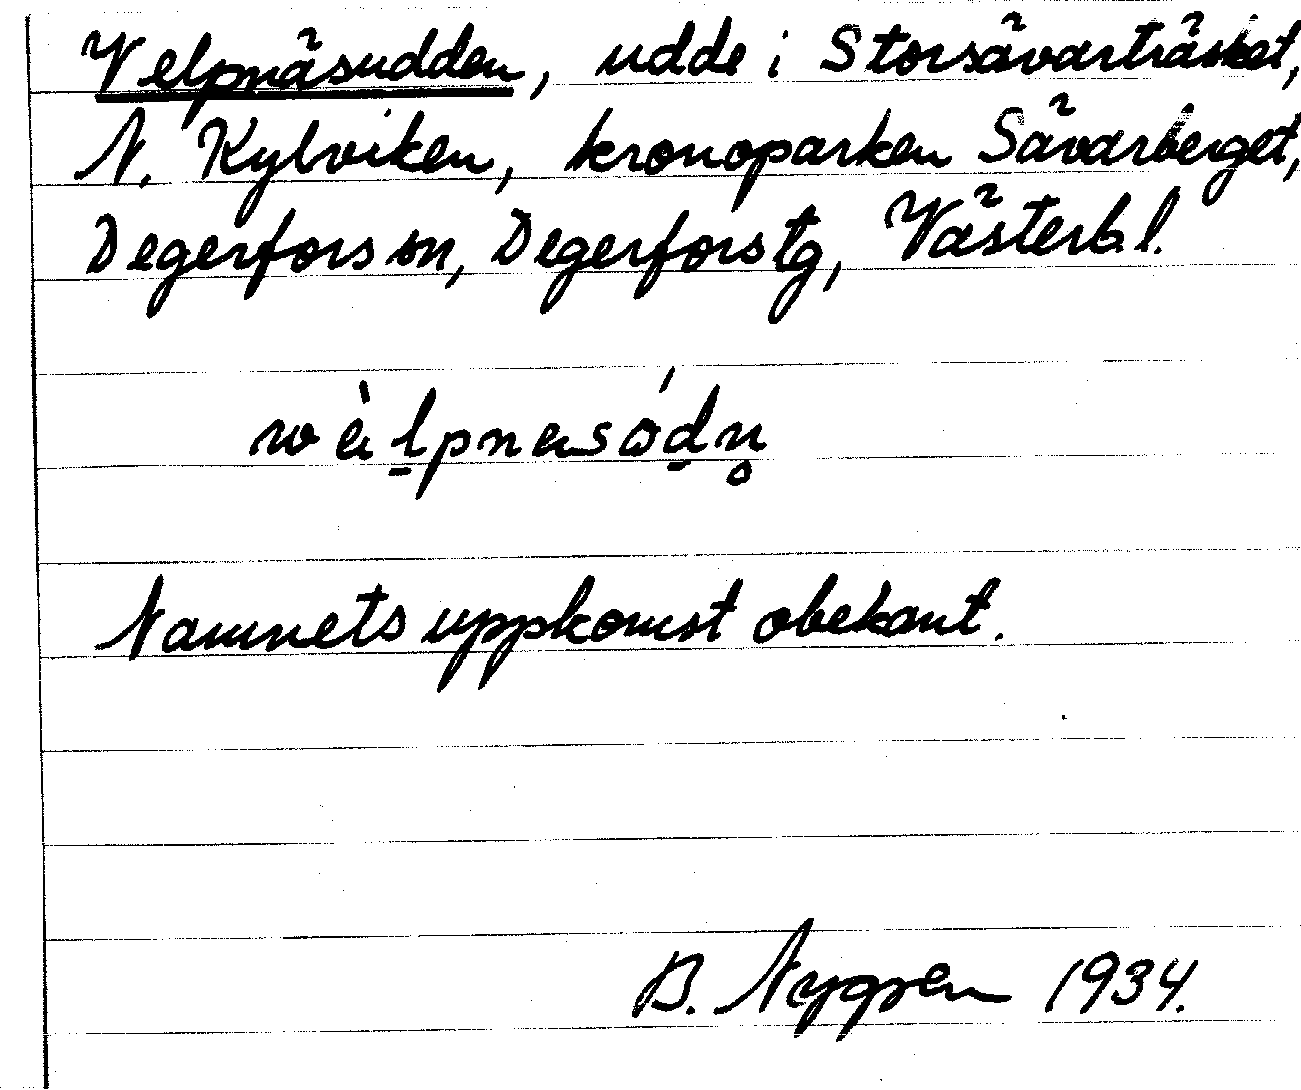 Velpnäsudden, udde i Storsävarträsket,
N. Kylviken, kronoparken Sävarberget,
Degerfors sn, Degerfors tg, Västerb. l.
Namnets uppkomst obekant.
B. Nygren 1934.